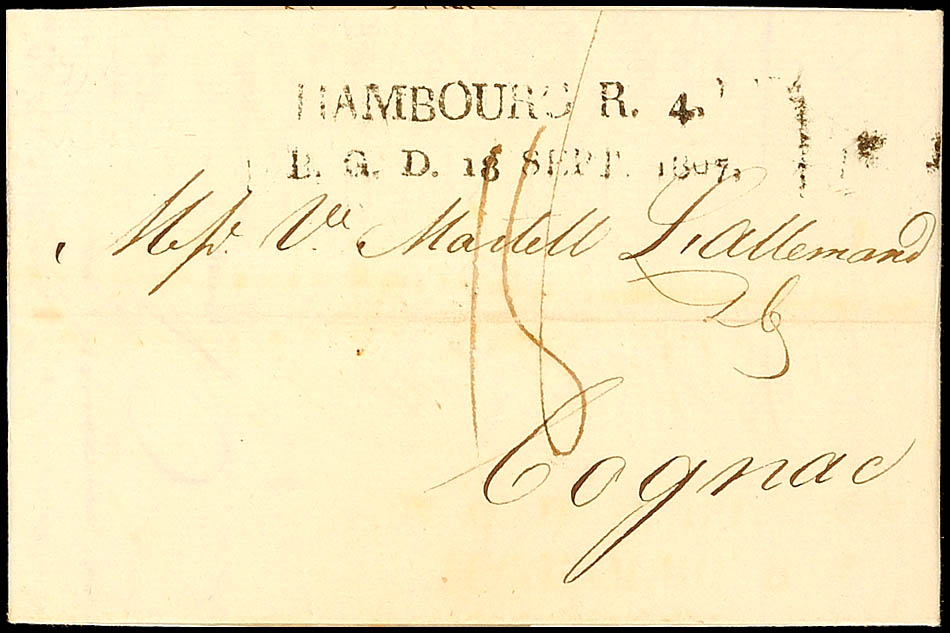 HAMBOURG R. 4.
B. G. D. 18 SEPT. 1807.
Mrs. Ve. Martell L'allemand
18
Cognac